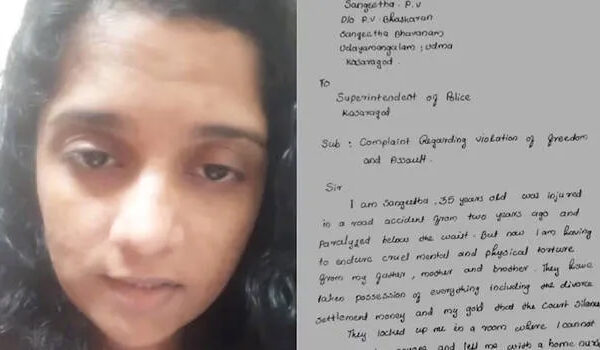 Sangeetha . P.V
D/o P.V Bhaskaran
Sangeetha Bhavanam
Udayamangalam ; Udma
Kasaragod
To
Superintendent of Police
Kasaragod
Sub : Complaint Regarding violation of freedom
and Assault .
Sir
I am Sangeetha , 35 years old was injured
in a road accident from two years ago and
Paralyzed below the waist . But now I am having
to endure cruel mental and physical torture
from my father , mother and brother . They have
taken possession of everything including the divorce
settlement money and my gold that the Court
They locked up me in a room where I cannot
and left me with a home